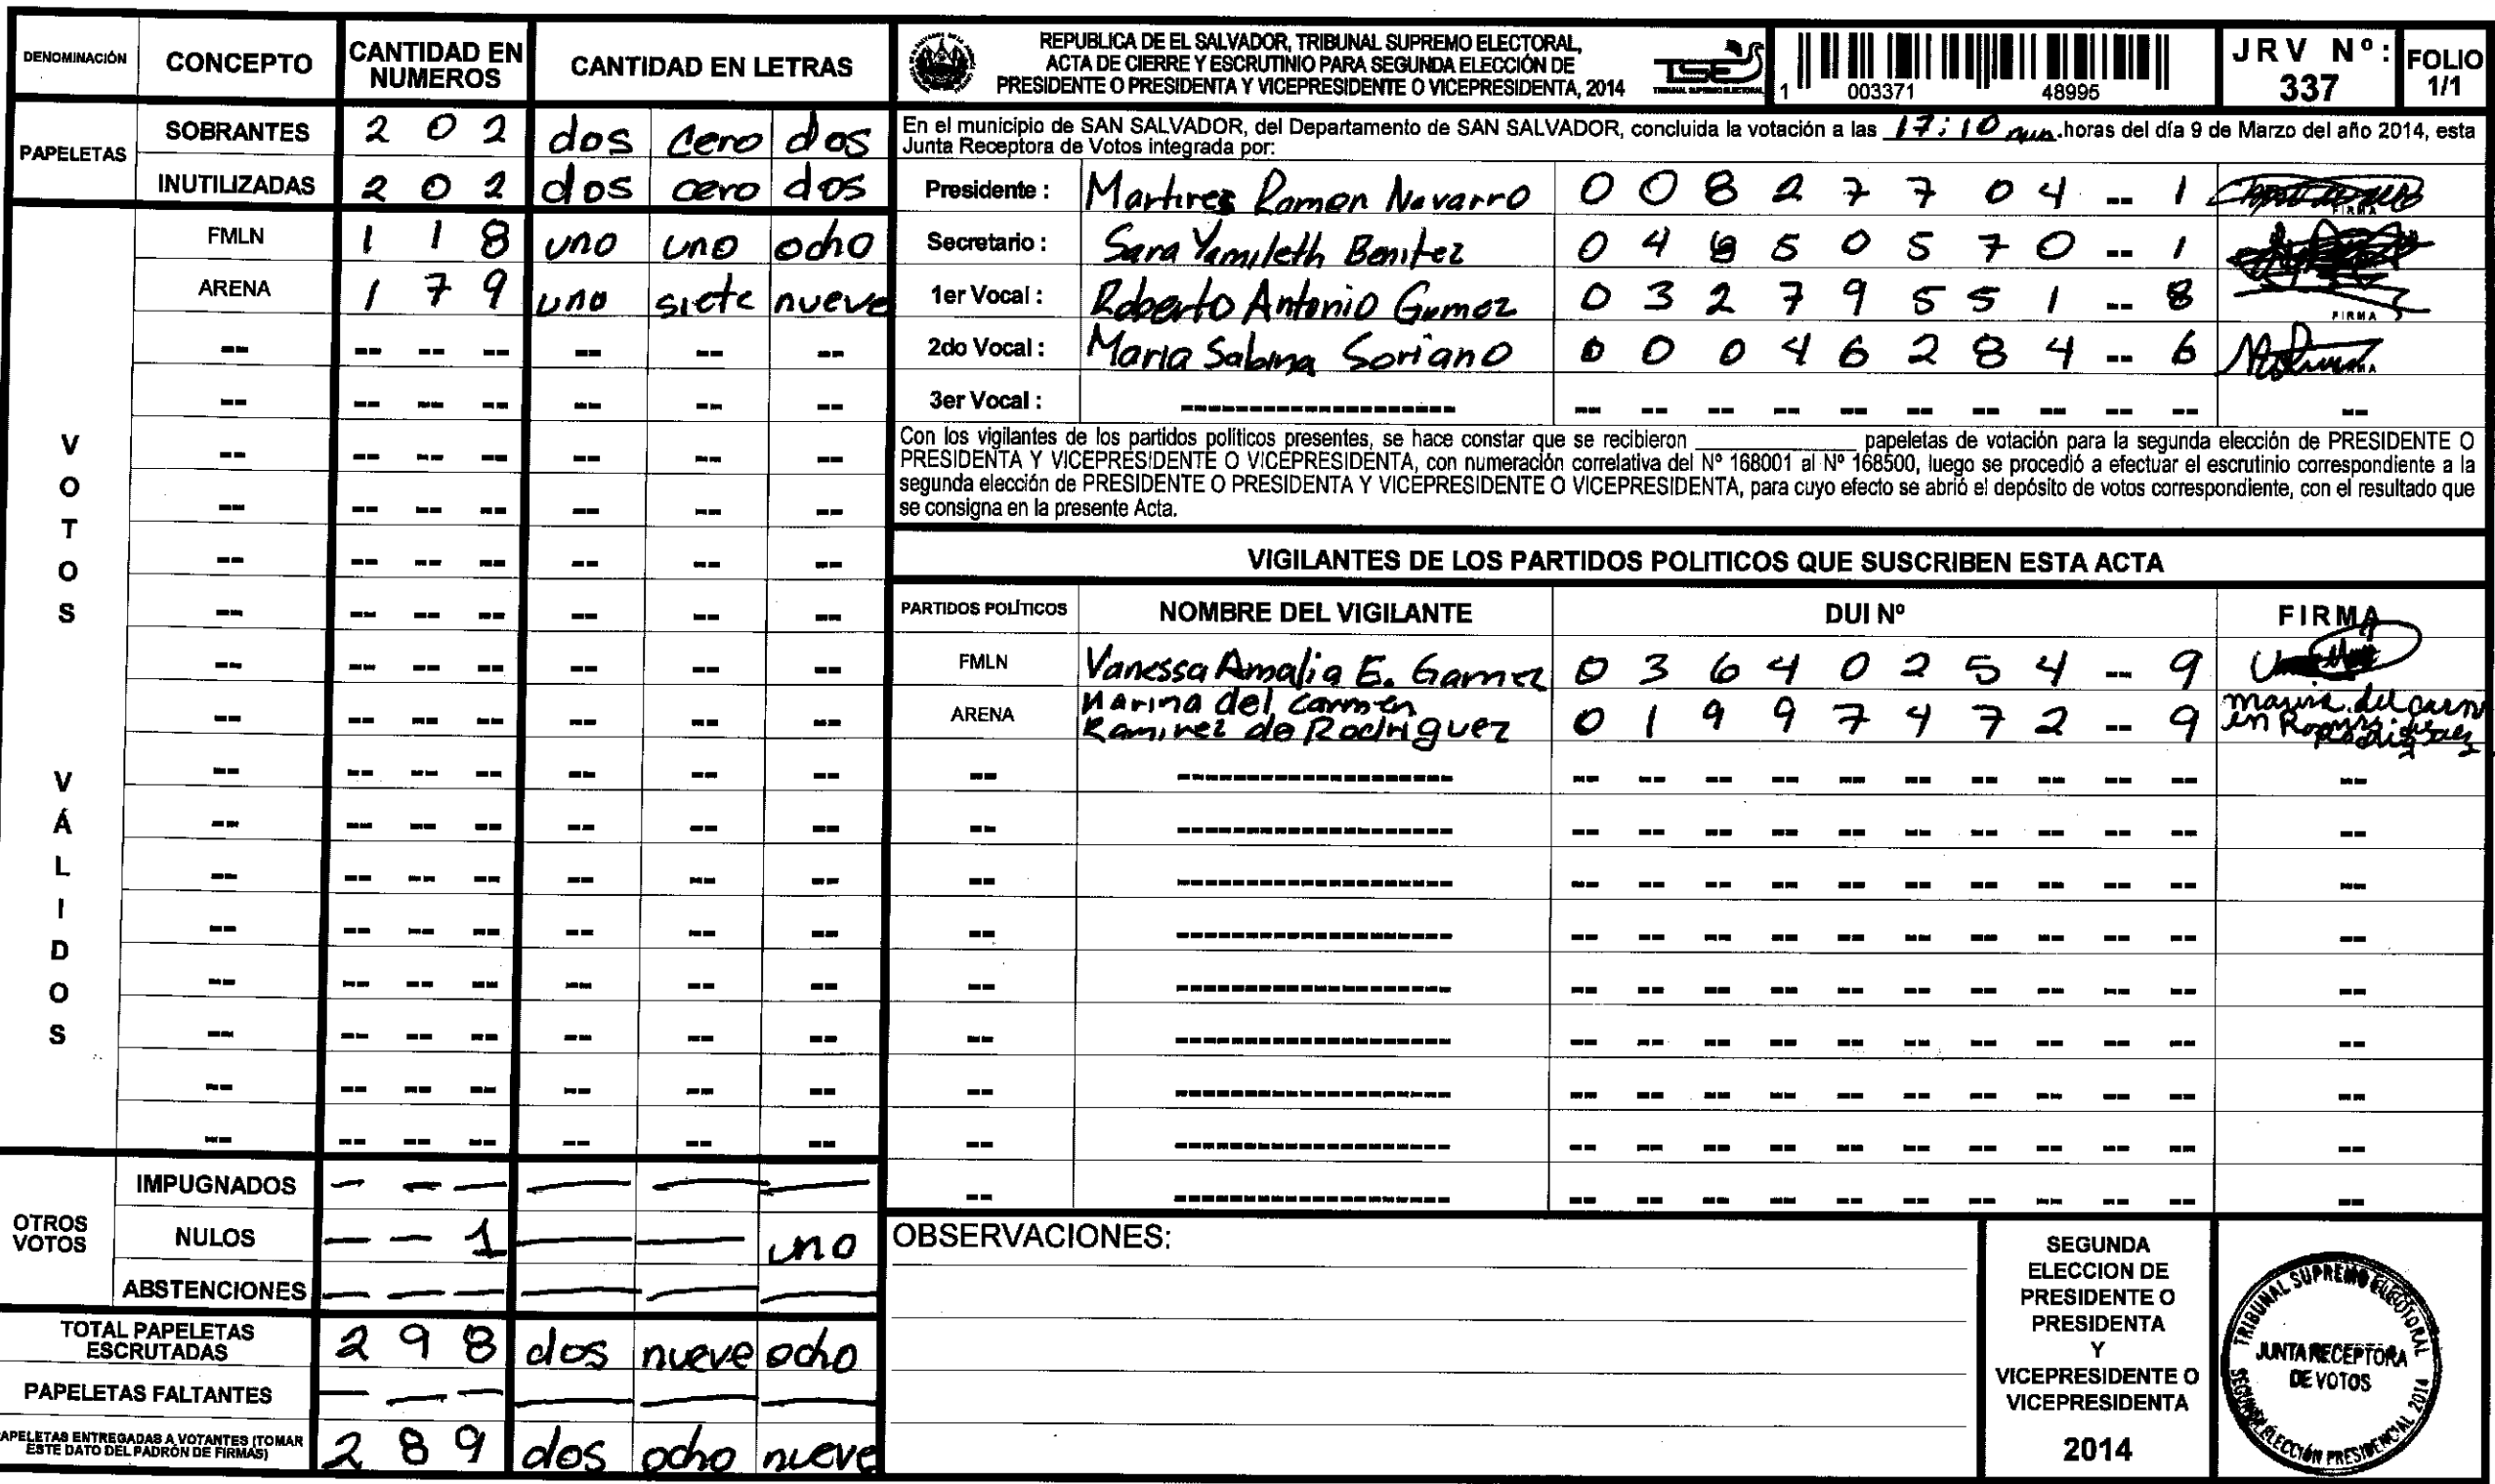 DENOMINACIÓN CONCEPTO CANTIDAD EN NUMEROS CANTIDAD EN LETRAS
PAPELETAS
SOBRANTES 2 0 2 dos cero dos
INUTILIZADAS 2 0 2 dos cero dos
VOTOS VÁLIDOS
FMLN 1 1 8 uno uno ocho
ARENA 1 7 9 uno siete nueve
OTROS VOTOS
IMPUGNADOS — — — — — —
NULOS — — 1 — — uno
ABSTENCIONES — — — — — —
TOTAL PAPELETAS ESCRUTADAS 2 9 8 dos nueve ocho
PAPELETAS FALTANTES — — — — — —
APELETAS ENTREGADAS A VOTANTES (TOMAR
ESTE DATO DEL PADRÓN DE FIRMAS) 2 8 9 dos ocho nueve
REPUBLICA DE EL SALVADOR, TRIBUNAL SUPREMO ELECTORAL,
ACTA DE CIERRE Y ESCRUTINIO PARA SEGUNDA ELECCIÓN DE
PRESIDENTE O PRESIDENTA Y VICEPRESIDENTE O VICEPRESIDENTA, 2014
TSE
TRIBUNAL SUPREMO ELECTORAL
1 003371 48995
JRV Nº: 337
FOLIO 1/1
En el municipio de SAN SALVADOR, del Departamento de SAN SALVADOR, concluida la votación a las 17:10 horas del día 9 de Marzo del año 2014, esta
Junta Receptora de Votos integrada por:
Presidente : Martires Ramon Navarro 0 0 8 2 7 7 0 4 -- 1
FIRMA
Secretario : Sara Yamileth Benitez 0 4 6 5 0 5 7 0 -- 1
1er Vocal : Roberto Antonio Gomez 0 3 2 7 9 5 5 1 -- 8
FIRMA
2do Vocal : Maria Sabina Soriano 0 0 0 4 6 2 8 4 -- 6
3er Vocal :
Con los vigilantes de los partidos políticos presentes, se hace constar que se recibieron ____________ papeletas de votación para la segunda elección de PRESIDENTE O
PRESIDENTA Y VICEPRESIDENTE O VICEPRESIDENTA, con numeración correlativa del Nº 168001 al Nº 168500, luego se procedió a efectuar el escrutinio correspondiente a la
segunda elección de PRESIDENTE O PRESIDENTA Y VICEPRESIDENTE O VICEPRESIDENTA, para cuyo efecto se abrió el depósito de votos correspondiente, con el resultado que
se consigna en la presente Acta.
VIGILANTES DE LOS PARTIDOS POLITICOS QUE SUSCRIBEN ESTA ACTA
PARTIDOS POLÍTICOS NOMBRE DEL VIGILANTE DUI Nº FIRMA
FMLN Vanessa Amalia E. Gamez 0 3 6 4 0 2 5 4 -- 9
ARENA Marina del Carmen
Ramirez de Rodriguez 0 1 9 9 7 4 7 2 -- 9
OBSERVACIONES:
SEGUNDA
ELECCION DE
PRESIDENTE O
PRESIDENTA
Y
VICEPRESIDENTE O
VICEPRESIDENTA
2014
TRIBUNAL SUPREMO ELECTORAL
JUNTA RECEPTORA
DE VOTOS
SEGUNDA ELECCIÓN PRESIDENCIAL 2014